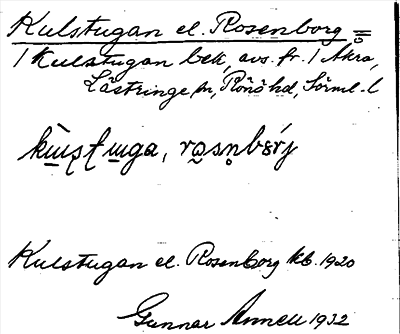 Kulstugan el. Rosenborg =
/ Kulstugan bek, avs. fr. / Åkra,
Lästringe sn, Rönö hd, Söml. l
Kulstugan el. Rosenborg kb. 1920
Gunnar Annell 1932